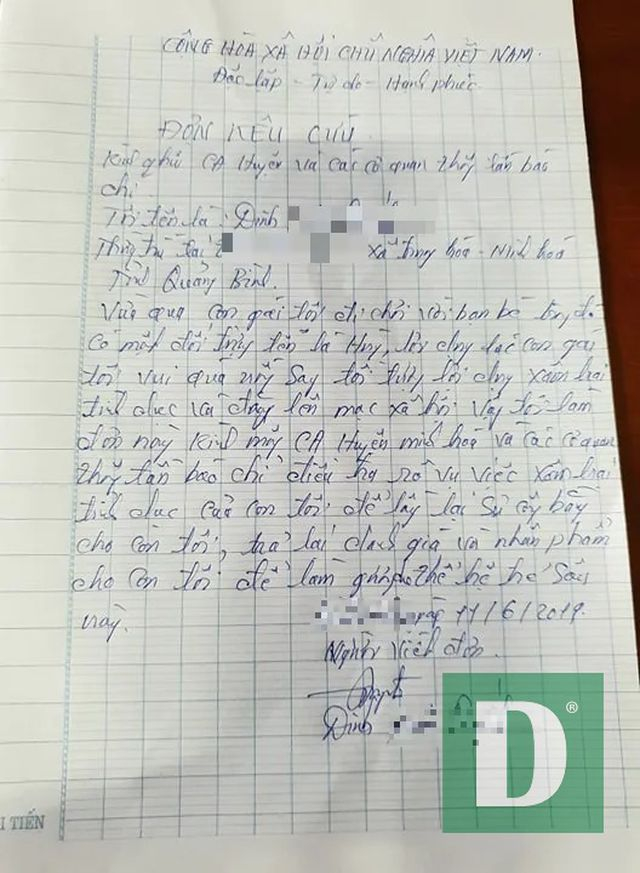 CỘNG HÒA XÃ HỘI CHỦ NGHĨA VIỆT NAM.
Độc lập - Tự do - Hạnh phúc.
ĐƠN KÊU CỨU
Kính gửi CA Huyện và các cơ quan thông tấn báo
chí
Tôi tên là: Đinh
Thường trú tại: xã trung hoá - Minh hoá
Tỉnh Quảng Bình.
Vừa qua con gái tôi đi chơi với bạn bè trong đó
có một đối tượng tên là Huy, lợi dụng lúc con gái
tôi vui quá uống say tối tượng lợi dụng xâm hại
tình dục và đăng lên mạc xã hội vậy tôi làm
đơn này kính mong CA Huyện minh hoá và các cơ quan
thông tấn báo chí điều tra rõ vụ việc xâm hại
tình dục của con tôi để lấy lại sự công bằng
cho con tôi, trả lại danh giá và nhân phẩm
cho con tôi để làm gương cho thế hệ trẻ sau
này.
ngày 11/6/2019.
Người viết đơn.
Đinh
I TIẾN
D®